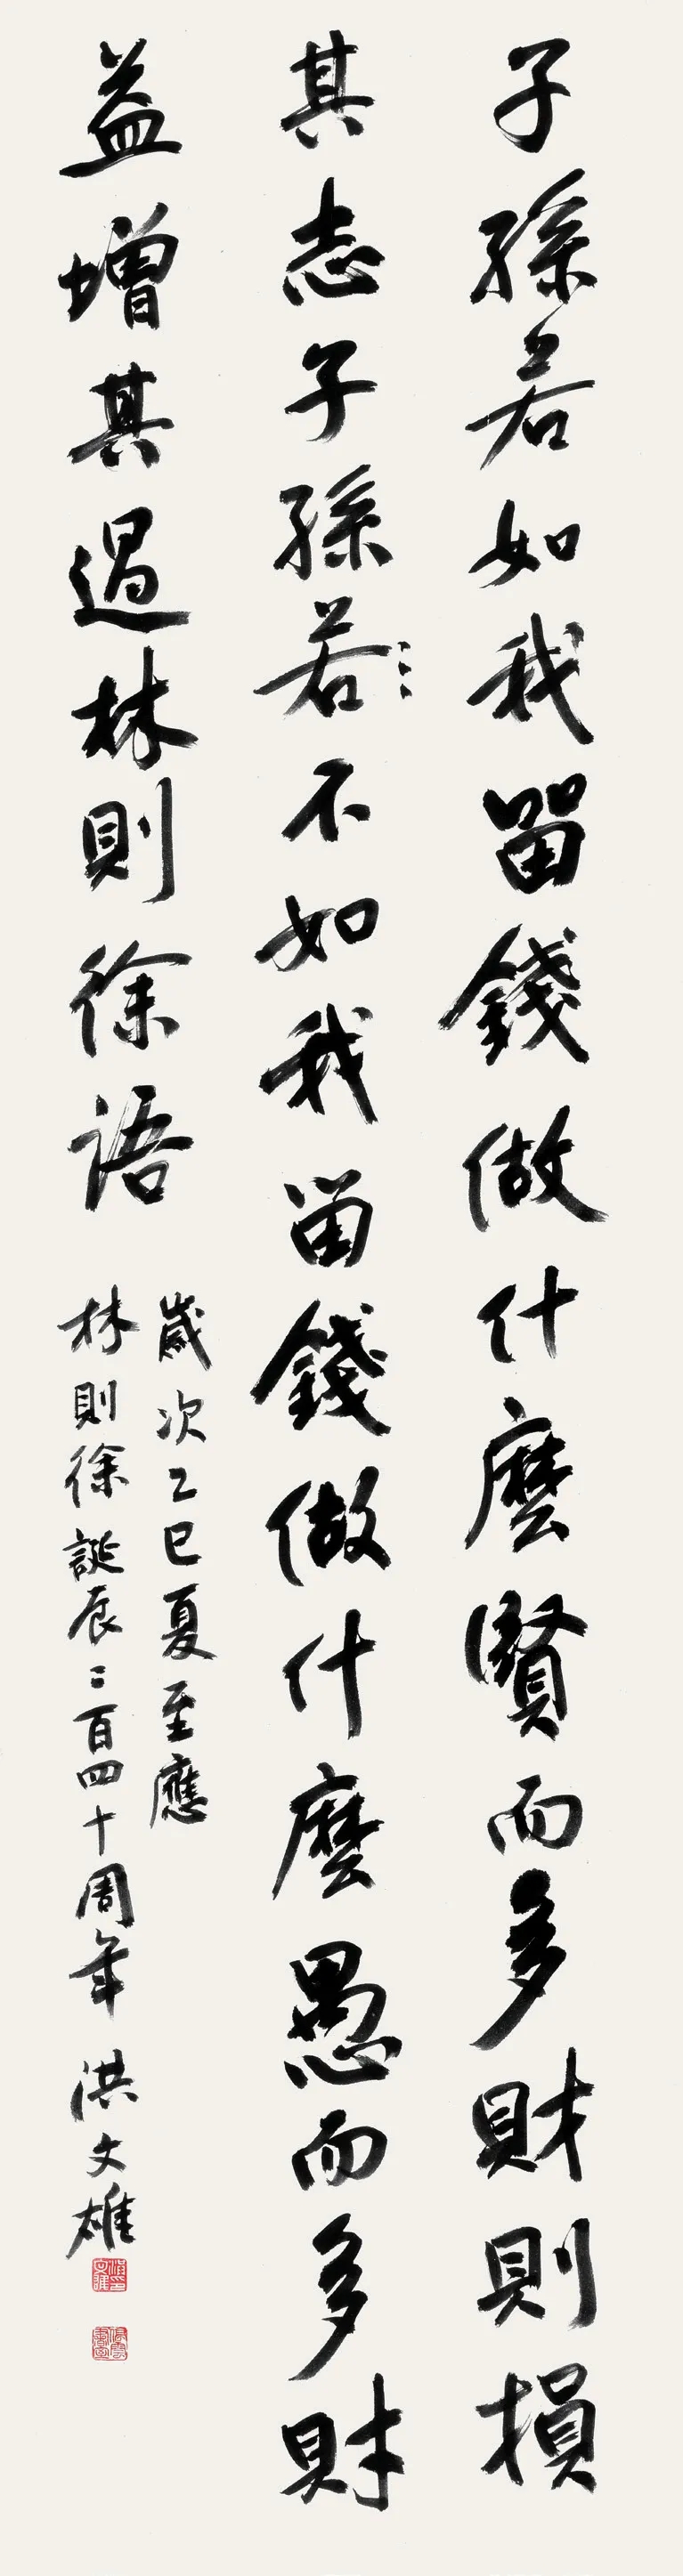 子孫若如我留錢做什麼賢而多財則損
其志子孫若不如我留錢做什麼愚而多財
益增其過林則徐語
歲次乙巳夏至應
林則徐誕辰二百四十周年 洪文雄